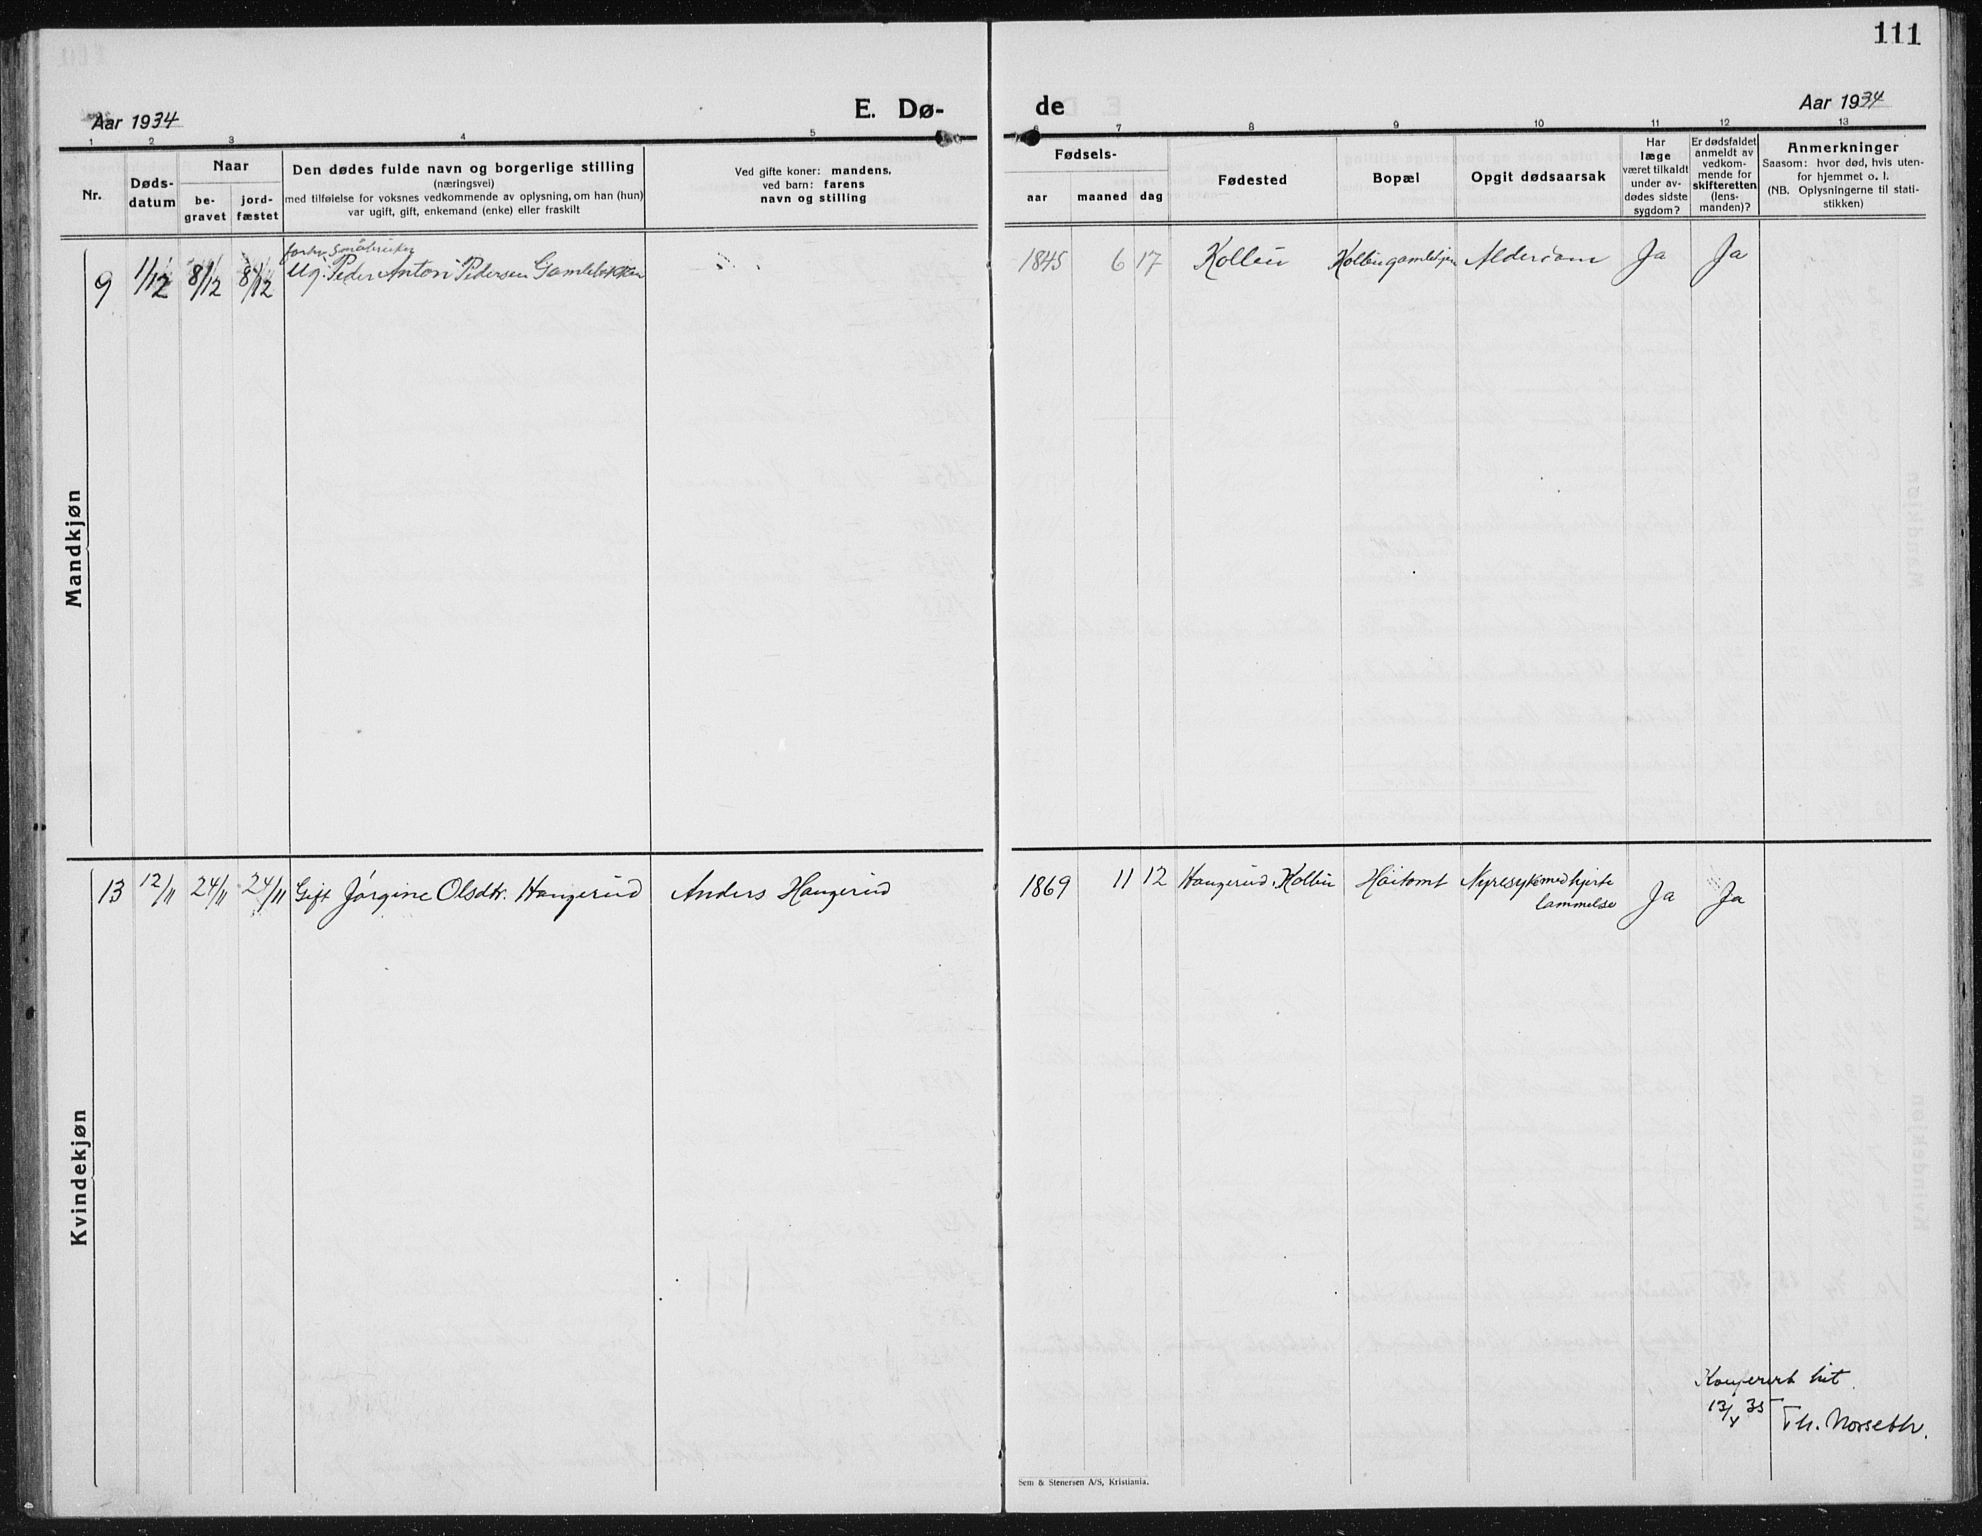 111
Aar 1934
E. Dø-
de
Aar 1934
1 2 3 4 5 6 7 8 9 10 11 12 13
Nr.
Døds-
datum
Naar
be-
gravet
jord-
fæstet
Den dødes fulde navn og borgerlige stilling
(næringsvei)
med tilføielse for voksnes vedkommende av oplysning, om han (hun)
var ugift, gift, enkemand (enke) eller fraskilt
Ved gifte koner: mandens,
ved barn: farens
navn og stilling
Fødsels-
aar maaned dag
Fødested
Bopæl
Opgit dødsaarsak
Har
læge
været tilkaldt
under av-
dødes sidste
sygdom?
Er dødsfaldet
anmeldt av
vedkom-
mende for
skifteretten
(lens-
manden)?
Anmerkninger
Saasom: hvor død, hvis uten-
for hjemmet o. l.
(NB. Oplysningerne til stati-
stikken)
Mandkjøn
forhv. småbruker
9 1/12 8/12 8/12 Ug. Peder Anton Pedersen Gamlebakken 1845 6 17 Kolbu Kolbu gamlehjem Alderdom Ja Ja
Kvindekjøn
13 12/11 24/11 24/11 Gift Jørgine Olsdtr. Haugerud Anders Haugerud 1869 11 12 Haugerud, Kolbu Høitomt Nyresyke med hjerte
lammelse Ja Ja
Konferert hit.
13/4 35
Th. Norseth.
Sem & Stenersen A/S, Kristiania.